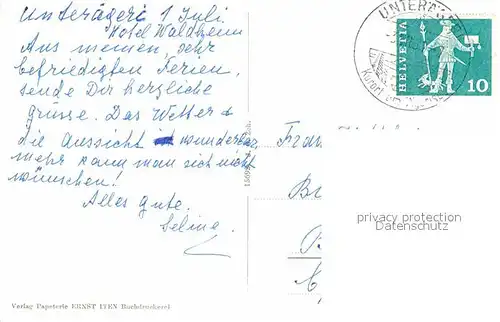 Unterägeri 1 Juli
Hotel Waldheim
Aus meinen, sehr
befriedigten Ferien,
sende Dir herzliche
grüsse. Das Wetter &
die Aussicht ist wunderbar,
mehr kann man sich nicht
wünschen!
Alles gute.
Selina
UNTERÄ
Kurort
HELVETIA
10
privacy protection
Datenschutz
Verlag Papeterie ERNST ITEN Buchdruckerei